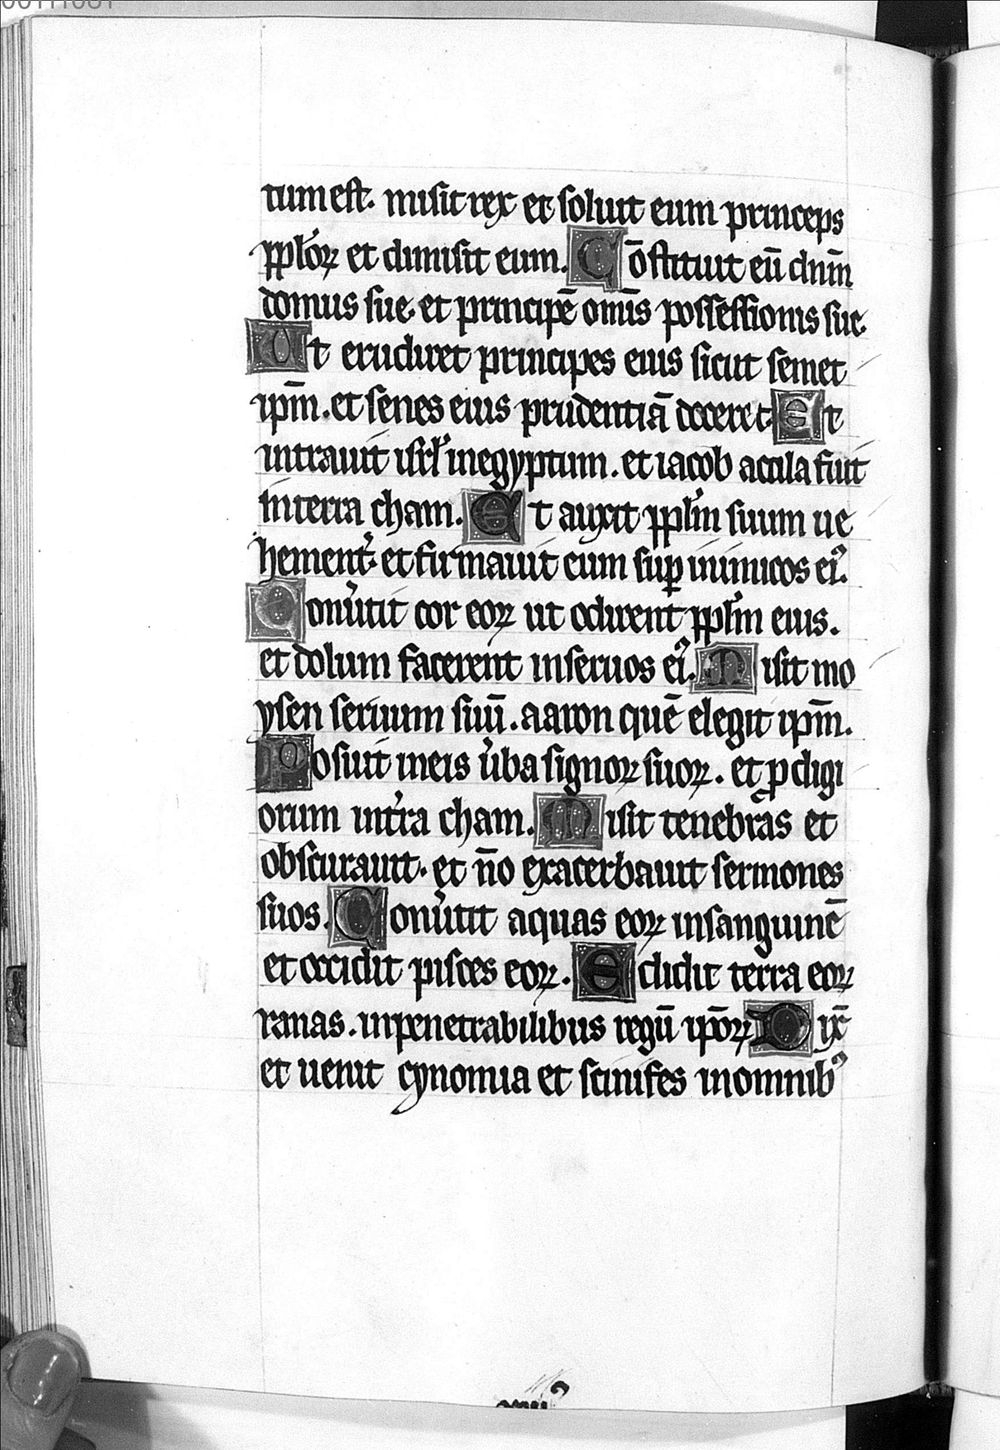 tum est. misit rex et soluit eum princeps
pplōꝝ et dimisit eum. Cōstituit eū dnm̄
domus sue. et principē omīs possessionis sue.
Ut erudiret principes eius sicut semet
ipm̄. et senes eius prudentiā doceret. Et
intrauit isrl̄ in egyptum. et iacob accola fuit
in terra cham. Et auxit pplm̄ suum ue
hement᷑. et firmauit eum suꝑ inimicos ei᷒.
Conu᷑tit cor eoꝝ ut odirent pplm̄ eius.
et dolum facerent in seruos ei᷒. Misit mo
ysen seruum suū. aaron quē elegit ipm̄.
Posuit in eis u᷑ba signoꝝ suoꝝ. et ꝓdigi
orum in t᷑ra cham. Misit tenebras et
obscurauit. et n̄o exacerbauit sermones
suos. Conu᷑tit aquas eoꝝ in sanguinē
et occidit pisces eoꝝ. Edidit terra eoꝝ
ranas. in penetrabilibus regū ipōꝝ. Dix̄
et uenit cynomia et scinifes in omnibꝰ